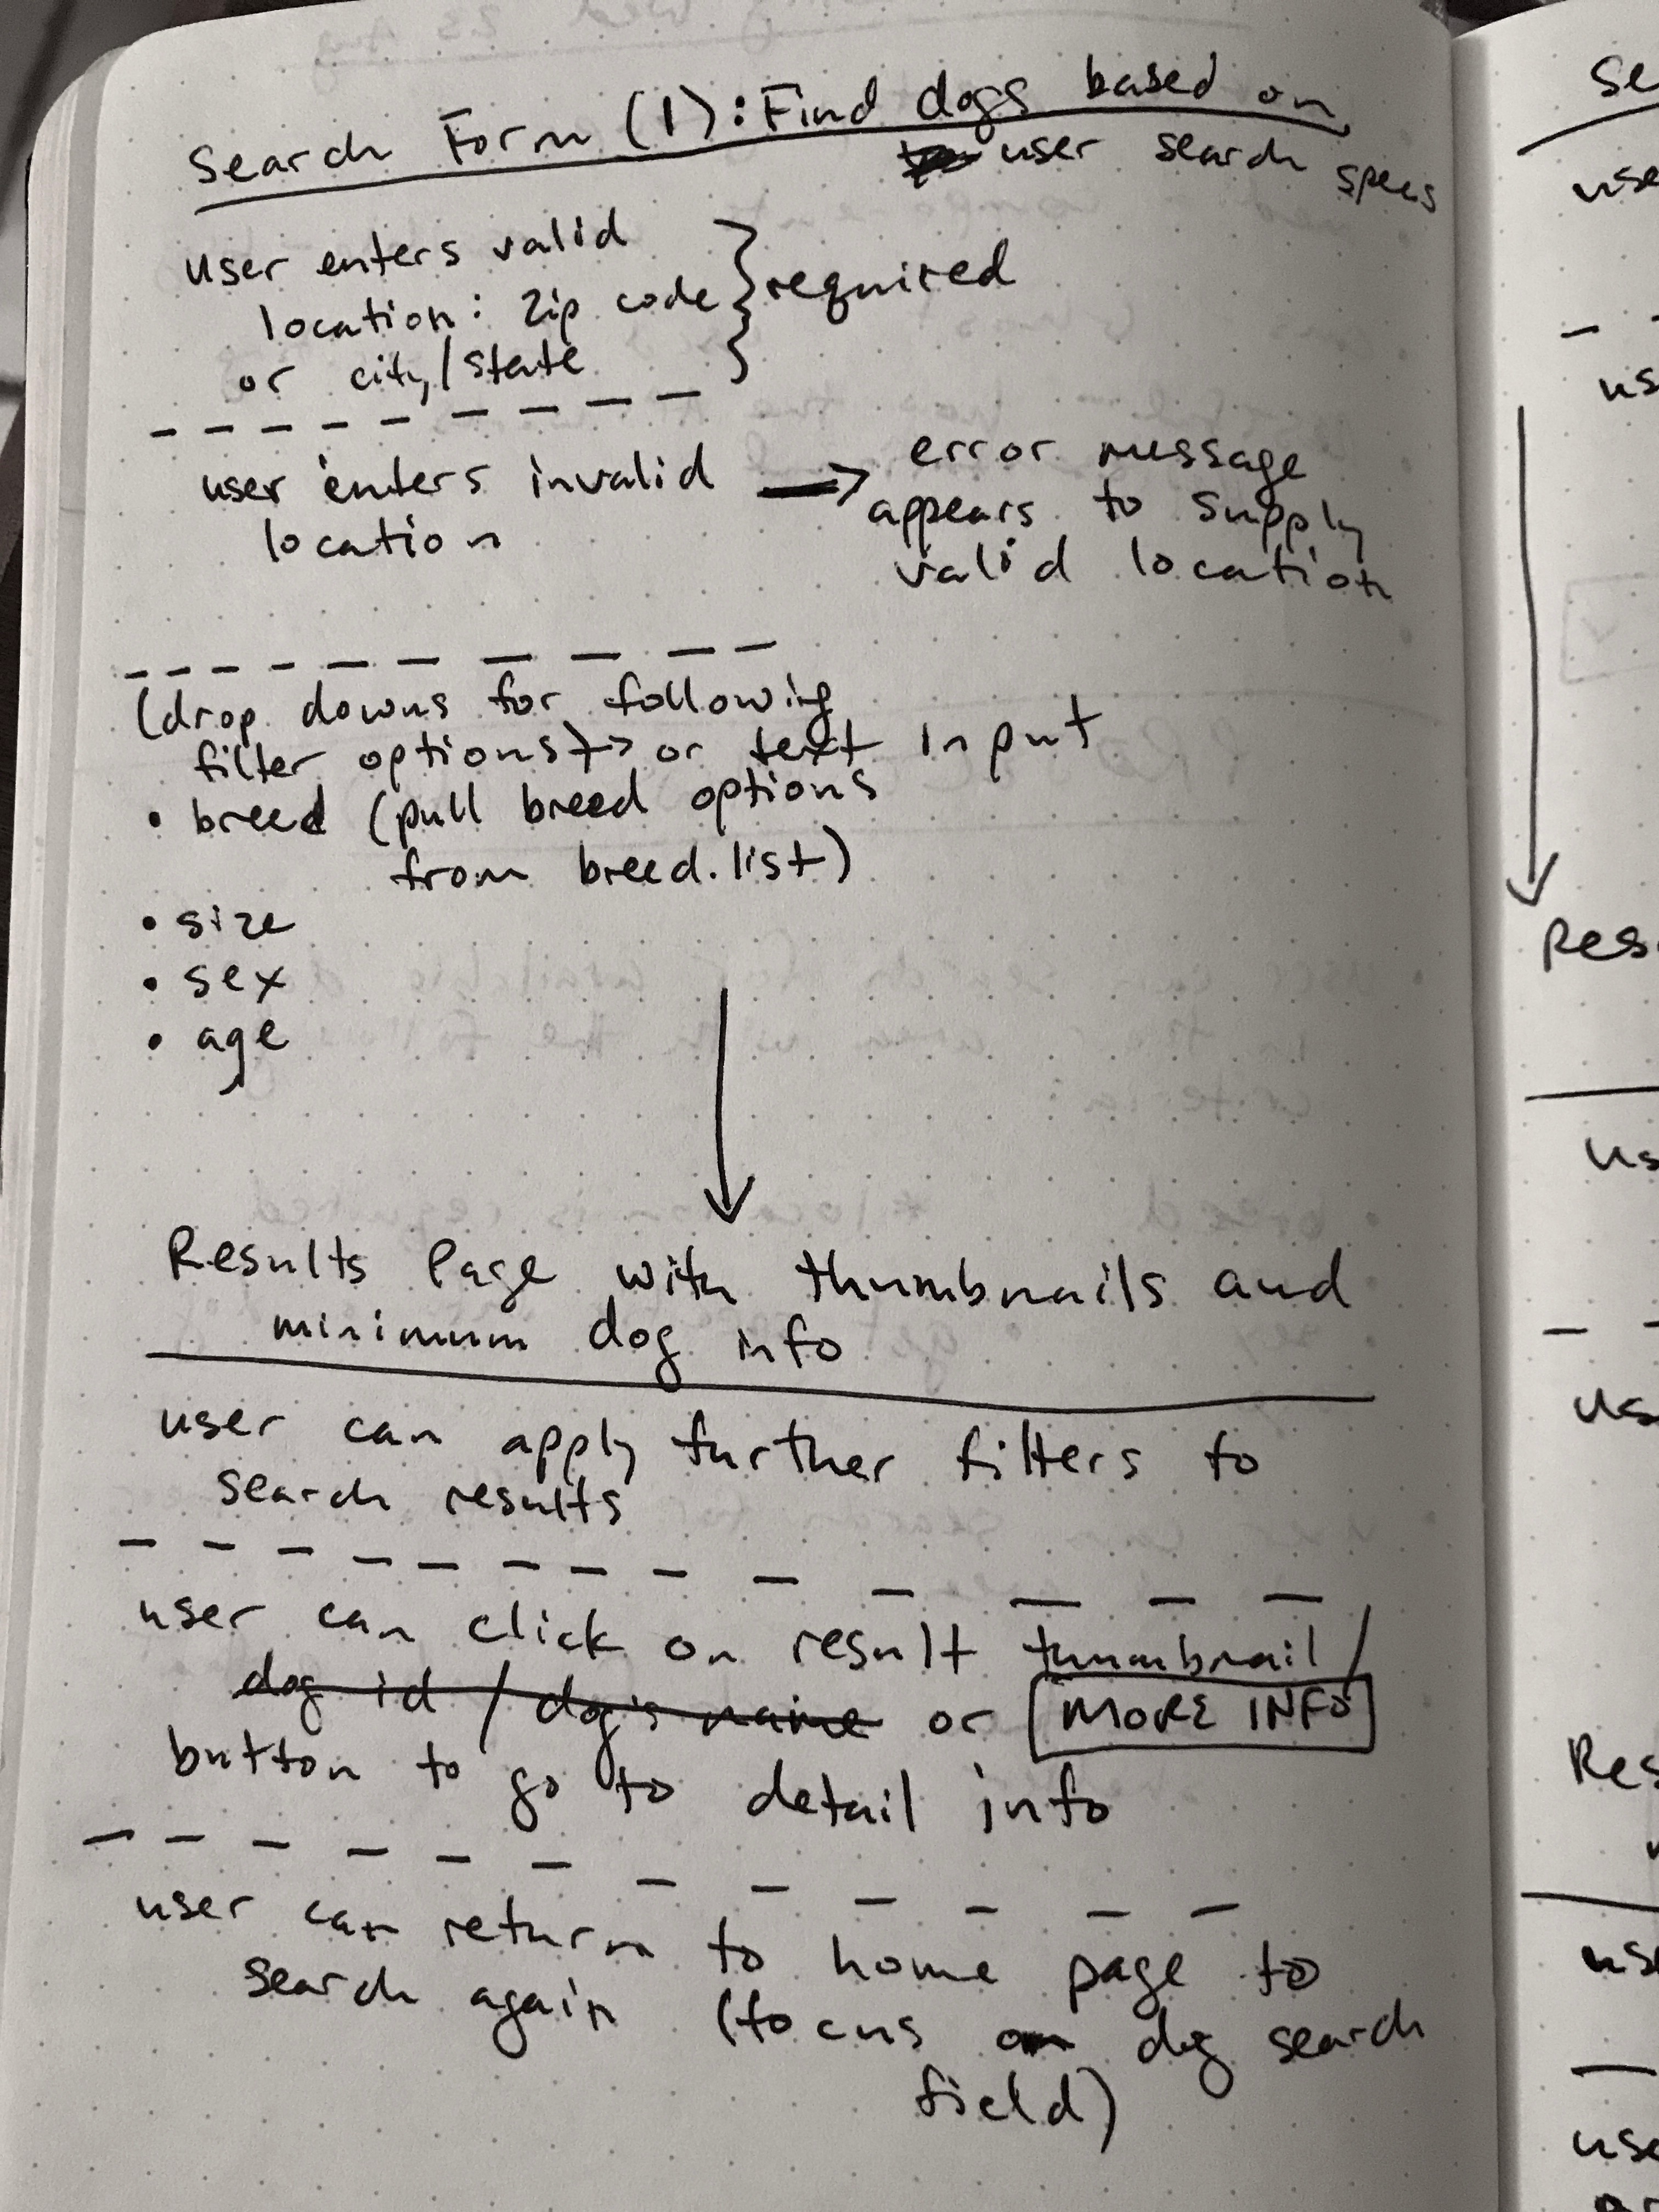 Search Form (1): Find dogs based on
user search specs
user enters valid
location: zip code } required
or city/state
user enters invalid → error message
location
appears to supply
valid location
(drop downs for following
filter options) → or text input
• breed (pull breed options
from breed.list)
• size
• sex
• age
Results Page with thumbnails and
minimum dog info
user can apply further filters to
search results
user can click on result thumbnail/
dog id / dog's name or MORE INFO
button to go to detail info
user can return to home page to
search again (focus on dog search
field)
Se
use
us
Res
us
us
Res
use
use